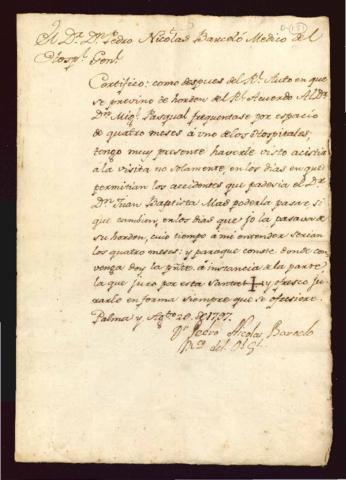 El Dr. Dn. Pedro Nicolas Barceló Medico del
Hospl. Genl.
Certifico: como despues del Rl. Auto en que
se previno de horden del Rl. Acuerdo Al Dr.
Dn. Migl. Pasqual frequentase por espacio
de quatro meses à uno de los Hospitales,
tengo muy presente haverle visto acistir
à la visita no solamente, en los dias en que
permitian los accidentes que padesia el Dr.
Dn. Juan Baptista Mas poderla pasar, si
que tambien, en los dias que Jo la pasava de
su horden, cuio tiempo à mi entender serian
los quatro meses: y paraque conste donde con
venga doy la pnte. à instancia de la parte
la que juro por esta Santa + y ofresco ju
rarlo en forma siempre que se ofresiere.
Palma y Agto. 20. de 1757.
Dr. Pedro Nicolas Barcelo
del Ol. Gl.